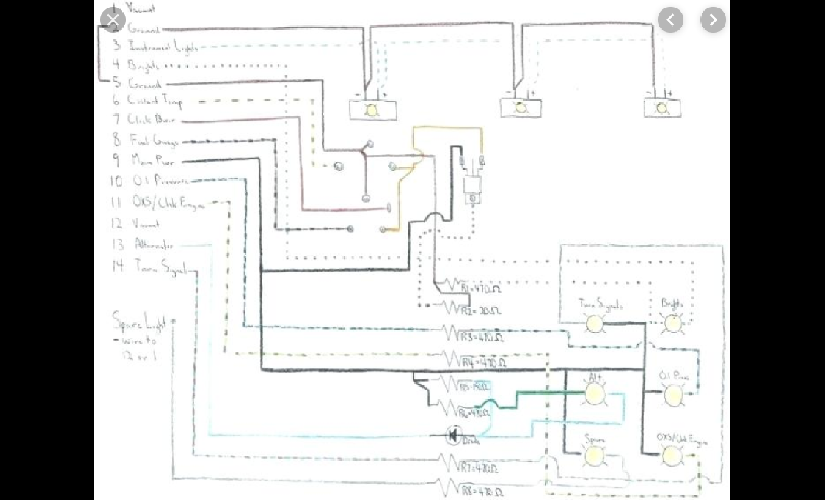 1 Vacant
2 Ground
3 Instrument Lights
4 Brights
5 Ground
6 Coolant Temp
7
8 Fuel Gauge
9 Main Power
10 Oil Pressure
11 OXS/Chk Engine
12 Vacant
13 Alternator
14 Turn Signal
Spare Light
- wire to
12 or 1
R1=470Ω
R3=470Ω
R4=470Ω
R7=470Ω
R8=470Ω
Diode
Turn Signals
Brights
Alt
Oil Press
Spare
OXS/Chk Engine